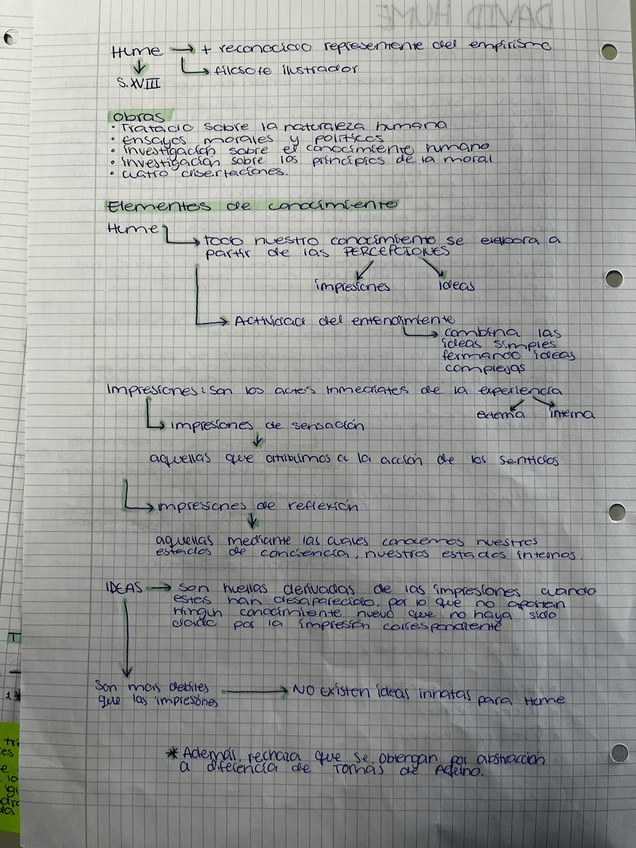 Hume → + reconocido representante del empirismo
↳ filósofo ilustrador
S.XVIII
Obras
• Tratado sobre la naturaleza humana
• ensayos morales y políticos
• investigación sobre el conocimiento humano
• investigación sobre los principios de la moral
• cuatro disertaciones.
Elementos de conocimiento
Hume
↳ todo nuestro conocimiento se elabora a
partir de las PERCEPCIONES
impresiones ideas
↳ Actividad del entendimiento
↳ combina las
ideas simples
formando ideas
complejas
Impresiones: son los actos inmediatos de la experiencia
externa interna
↳ impresiones de sensación
aquellas que atribuimos a la acción de los sentidos
↳ impresiones de reflexión
aquellas mediante las cuales conocemos nuestros
estados de conciencia, nuestros estados internos.
IDEAS → son huellas derivadas de las impresiones cuando
estas han desaparecido, por lo que no aportan
ningún conocimiento nuevo que no haya sido
dado por la impresión correspondiente
Son más débiles
que las impresiones → NO existen ideas innatas para Hume
* Además, rechaza que se obtengan por abstracción
a diferencia de Tomás de Aquino.